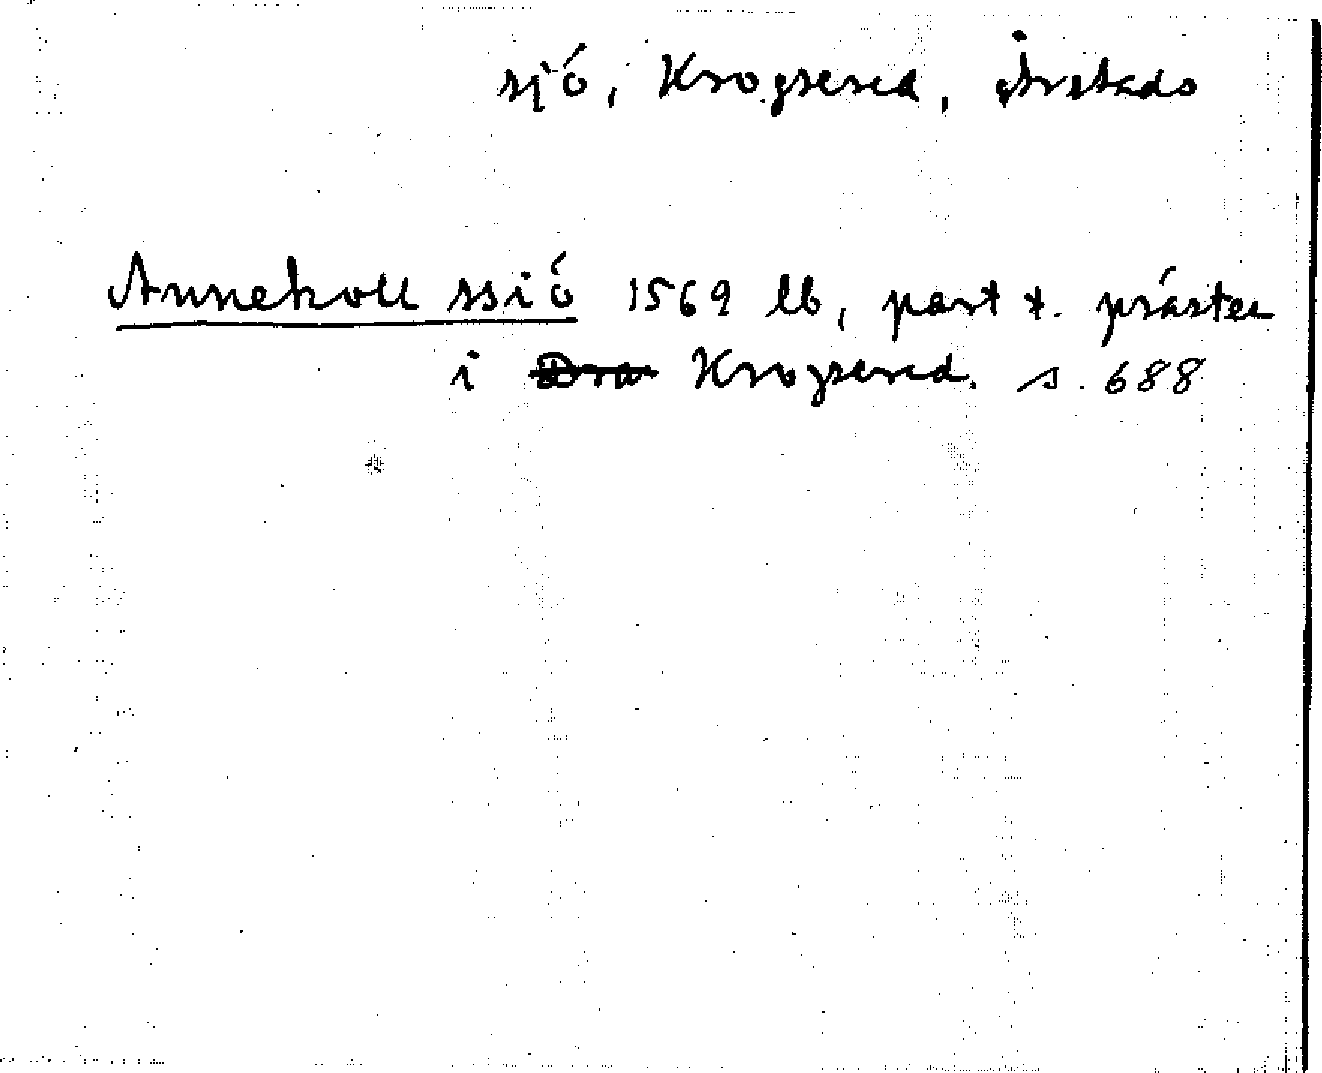 sjö, Krogsered, Årstads
Annekoll ssiö 1569 lb, part t. prästen
i Dra Krogsered. s. 688